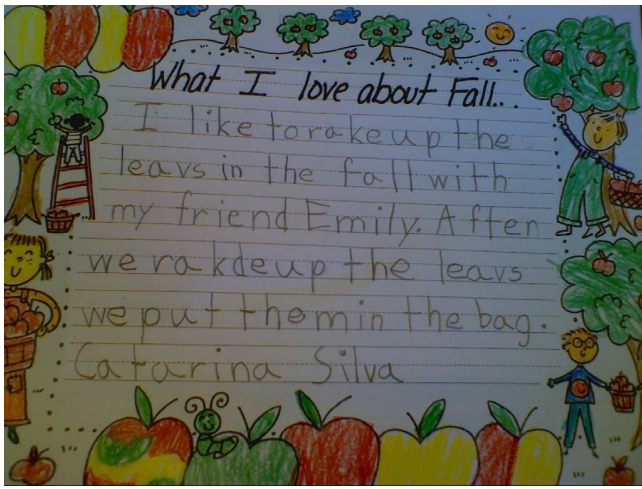 What I love about Fall...
I like to rake up the
leavs in the fall with
my friend Emily. Aften
we rakde up the leavs
we put them in the bag.
Catarina Silva